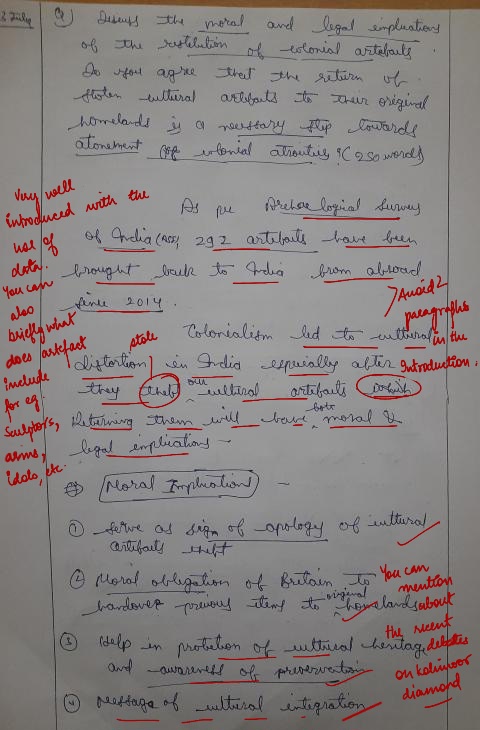 3 July
Q) Discuss the moral and legal implications
of the restitution of colonial artefacts.
Do you agree that the return of
stolen cultural artefacts to their original
homelands is a necessary step towards
atonement for colonial atrocities? (250 words)
Very well
introduced with the
use of
data.
You can
also
briefly what
does artefact
include
for eg.
sculptors,
arms,
idols, etc.
As per Archaelogical Survey
of India (ASI), 292 artefacts have been
brought back to India from abroad
since 2014.
Avoid 2
paragraphs
in the
Introduction.
Colonialism led to cultural
distortion in India especially after
stole
they theft our cultural artefacts which
Returning them will have both moral &
legal implications –
Moral Implications –
① Serve as sign of apology of cultural
artifacts theft
② Moral obligation of Britain to
handover previous items to original homelands
③ Help in protection of cultural heritage
and awareness of preservation
④ Message of cultural integration
You can
mention
about
the recent
debates
on kohinoor
diamond